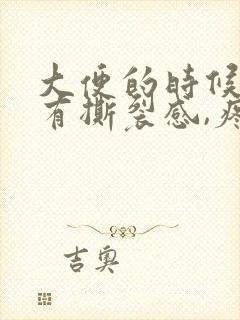 大便的时候
有撕裂感,疼
吉奥